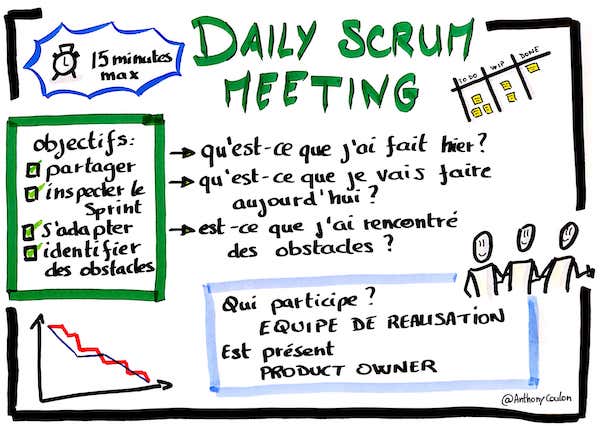 DAILY SCRUM
MEETING
15 minutes
max
TO DO
WIP
DONE
objectifs:
partager
inspecter le
Sprint
s'adapter
identifier
des obstacles
qu'est-ce que j'ai fait hier?
qu'est-ce que je vais faire
aujourd'hui ?
est-ce que j'ai rencontré
des obstacles ?
Qui participe ?
EQUIPE DE REALISATION
Est présent
PRODUCT OWNER
@AnthonyCoulon